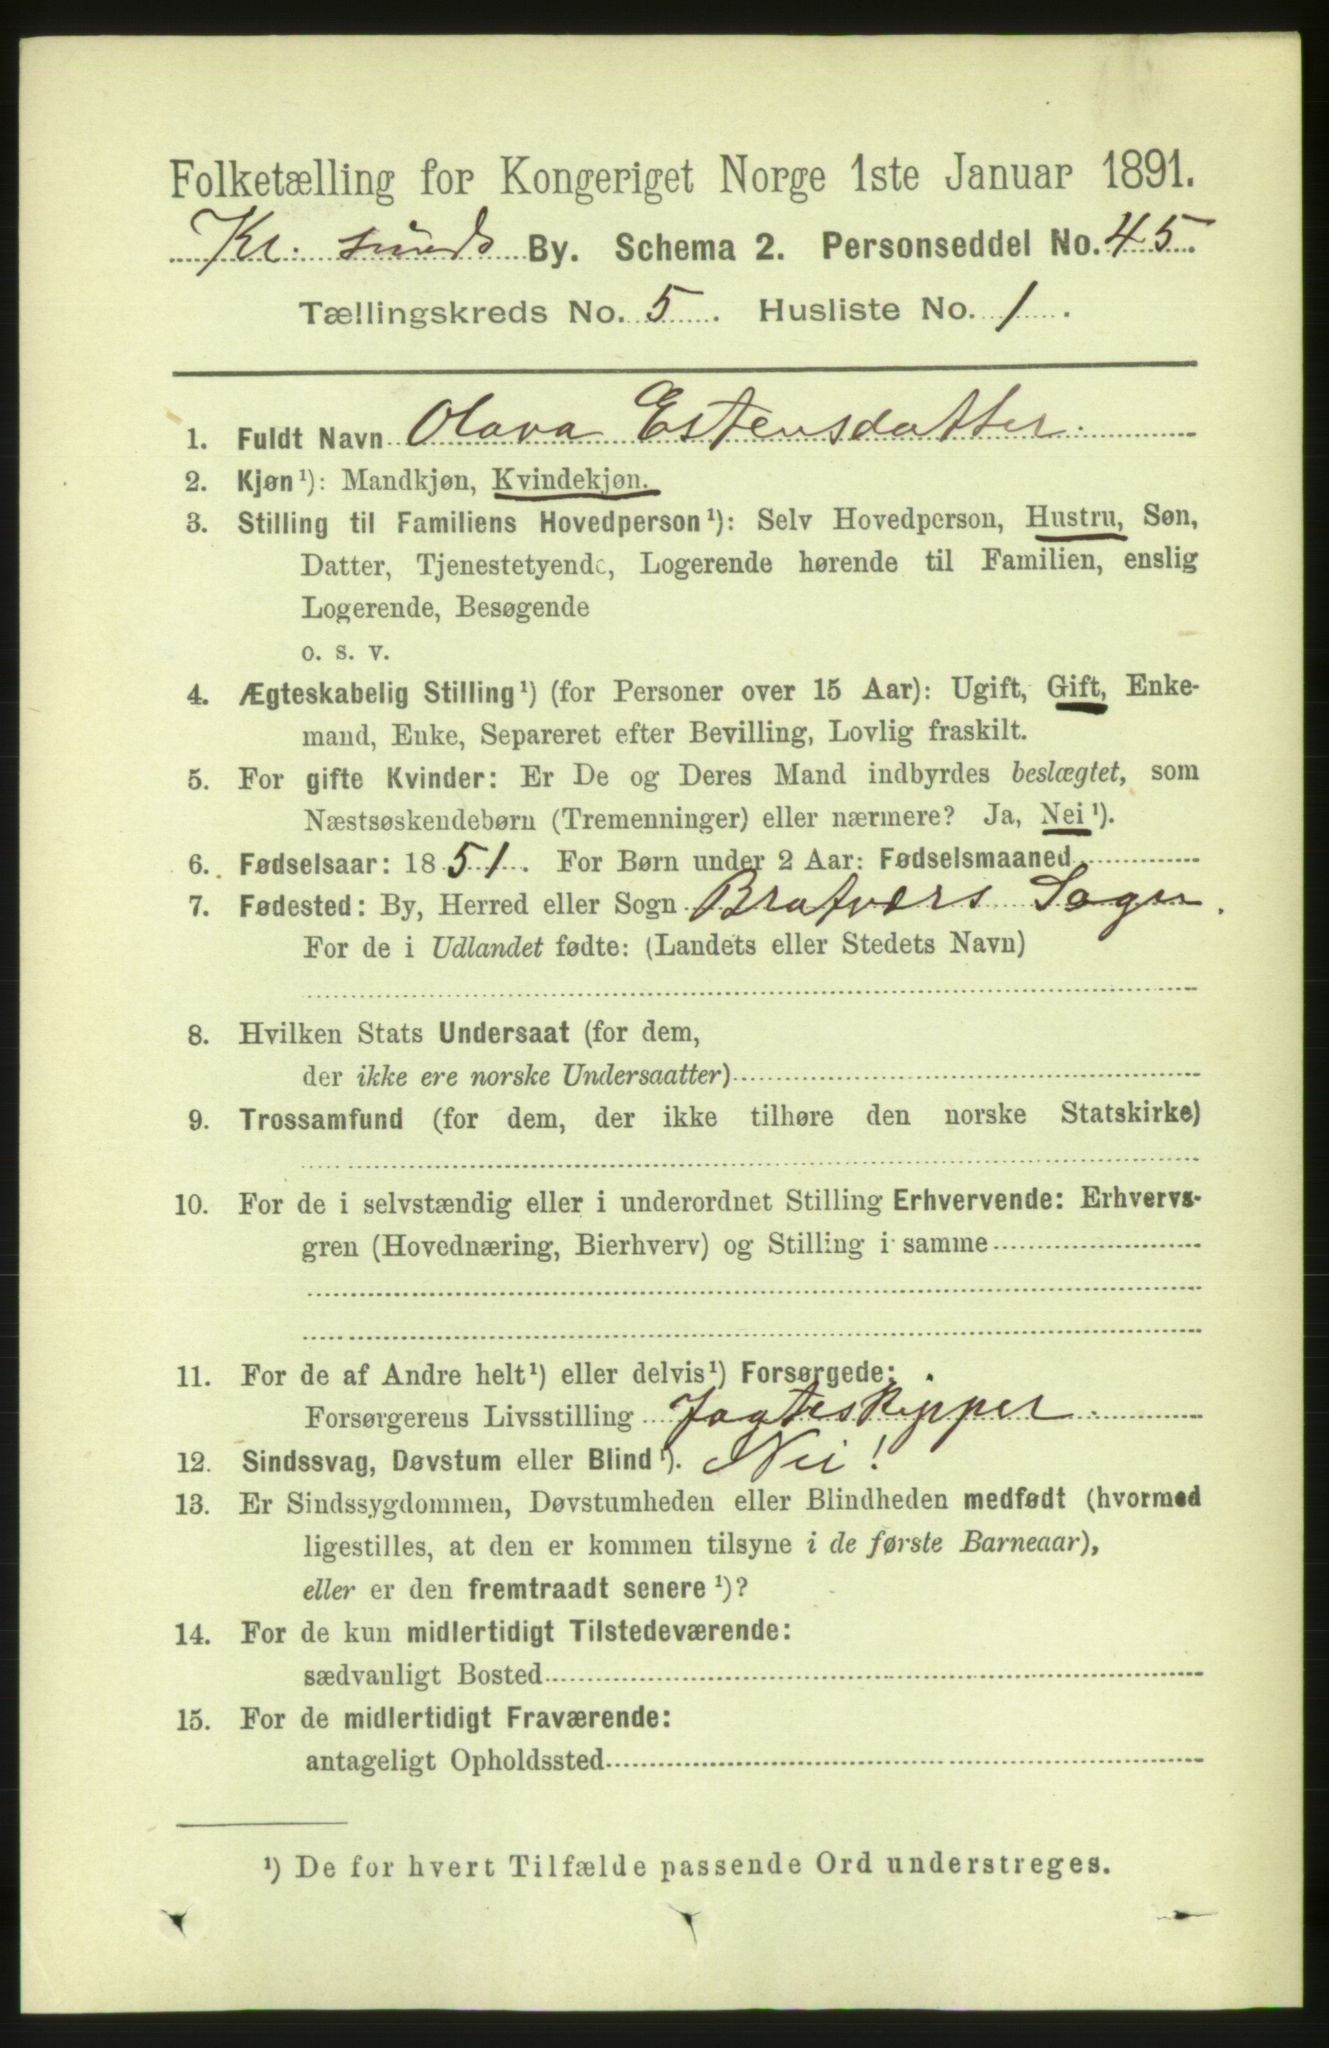 Folketælling for Kongeriget Norge 1ste Januar 1891.
Kr. sunds By. Schema 2. Personseddel No. 45.
Tællingskreds No. 5. Husliste No. 1.
1. Fuldt Navn Olava Estensdatter.
2. Kjøn¹): Mandkjøn, Kvindekjøn.
3. Stilling til Familiens Hovedperson¹): Selv Hovedperson, Hustru, Søn,
Datter, Tjenestetyende, Logerende hørende til Familien, enslig
Logerende, Besøgende
o. s. v.
4. Ægteskabelig Stilling¹) (for Personer over 15 Aar): Ugift, Gift, Enke-
mand, Enke, Separeret efter Bevilling, Lovlig fraskilt.
5. For gifte Kvinder: Er De og Deres Mand indbyrdes beslægtet, som
Næstsøskendebørn (Tremenninger) eller nærmere? Ja, Nei¹).
6. Fødselsaar: 1851. For Børn under 2 Aar: Fødselsmaaned
7. Fødested: By, Herred eller Sogn Bratværs Sogn.
For de i Udlandet fødte: (Landets eller Stedets Navn)
8. Hvilken Stats Undersaat (for dem,
der ikke ere norske Undersaatter)
9. Trossamfund (for dem, der ikke tilhøre den norske Statskirke)
10. For de i selvstændig eller i underordnet Stilling Erhvervende: Erhvervs-
gren (Hovednæring, Bierhverv) og Stilling i samme
11. For de af Andre helt¹) eller delvis¹) Forsørgede:
Forsørgerens Livsstilling Jagteskipper.
12. Sindssvag, Døvstum eller Blind¹). Nei!
13. Er Sindssygdommen, Døvstumheden eller Blindheden medfødt (hvormed
ligestilles, at den er kommen tilsyne i de første Barneaar),
eller er den fremtraadt senere¹)?
14. For de kun midlertidigt Tilstedeværende:
sædvanligt Bosted
15. For de midlertidigt Fraværende:
antageligt Opholdssted
¹) De for hvert Tilfælde passende Ord understreges.